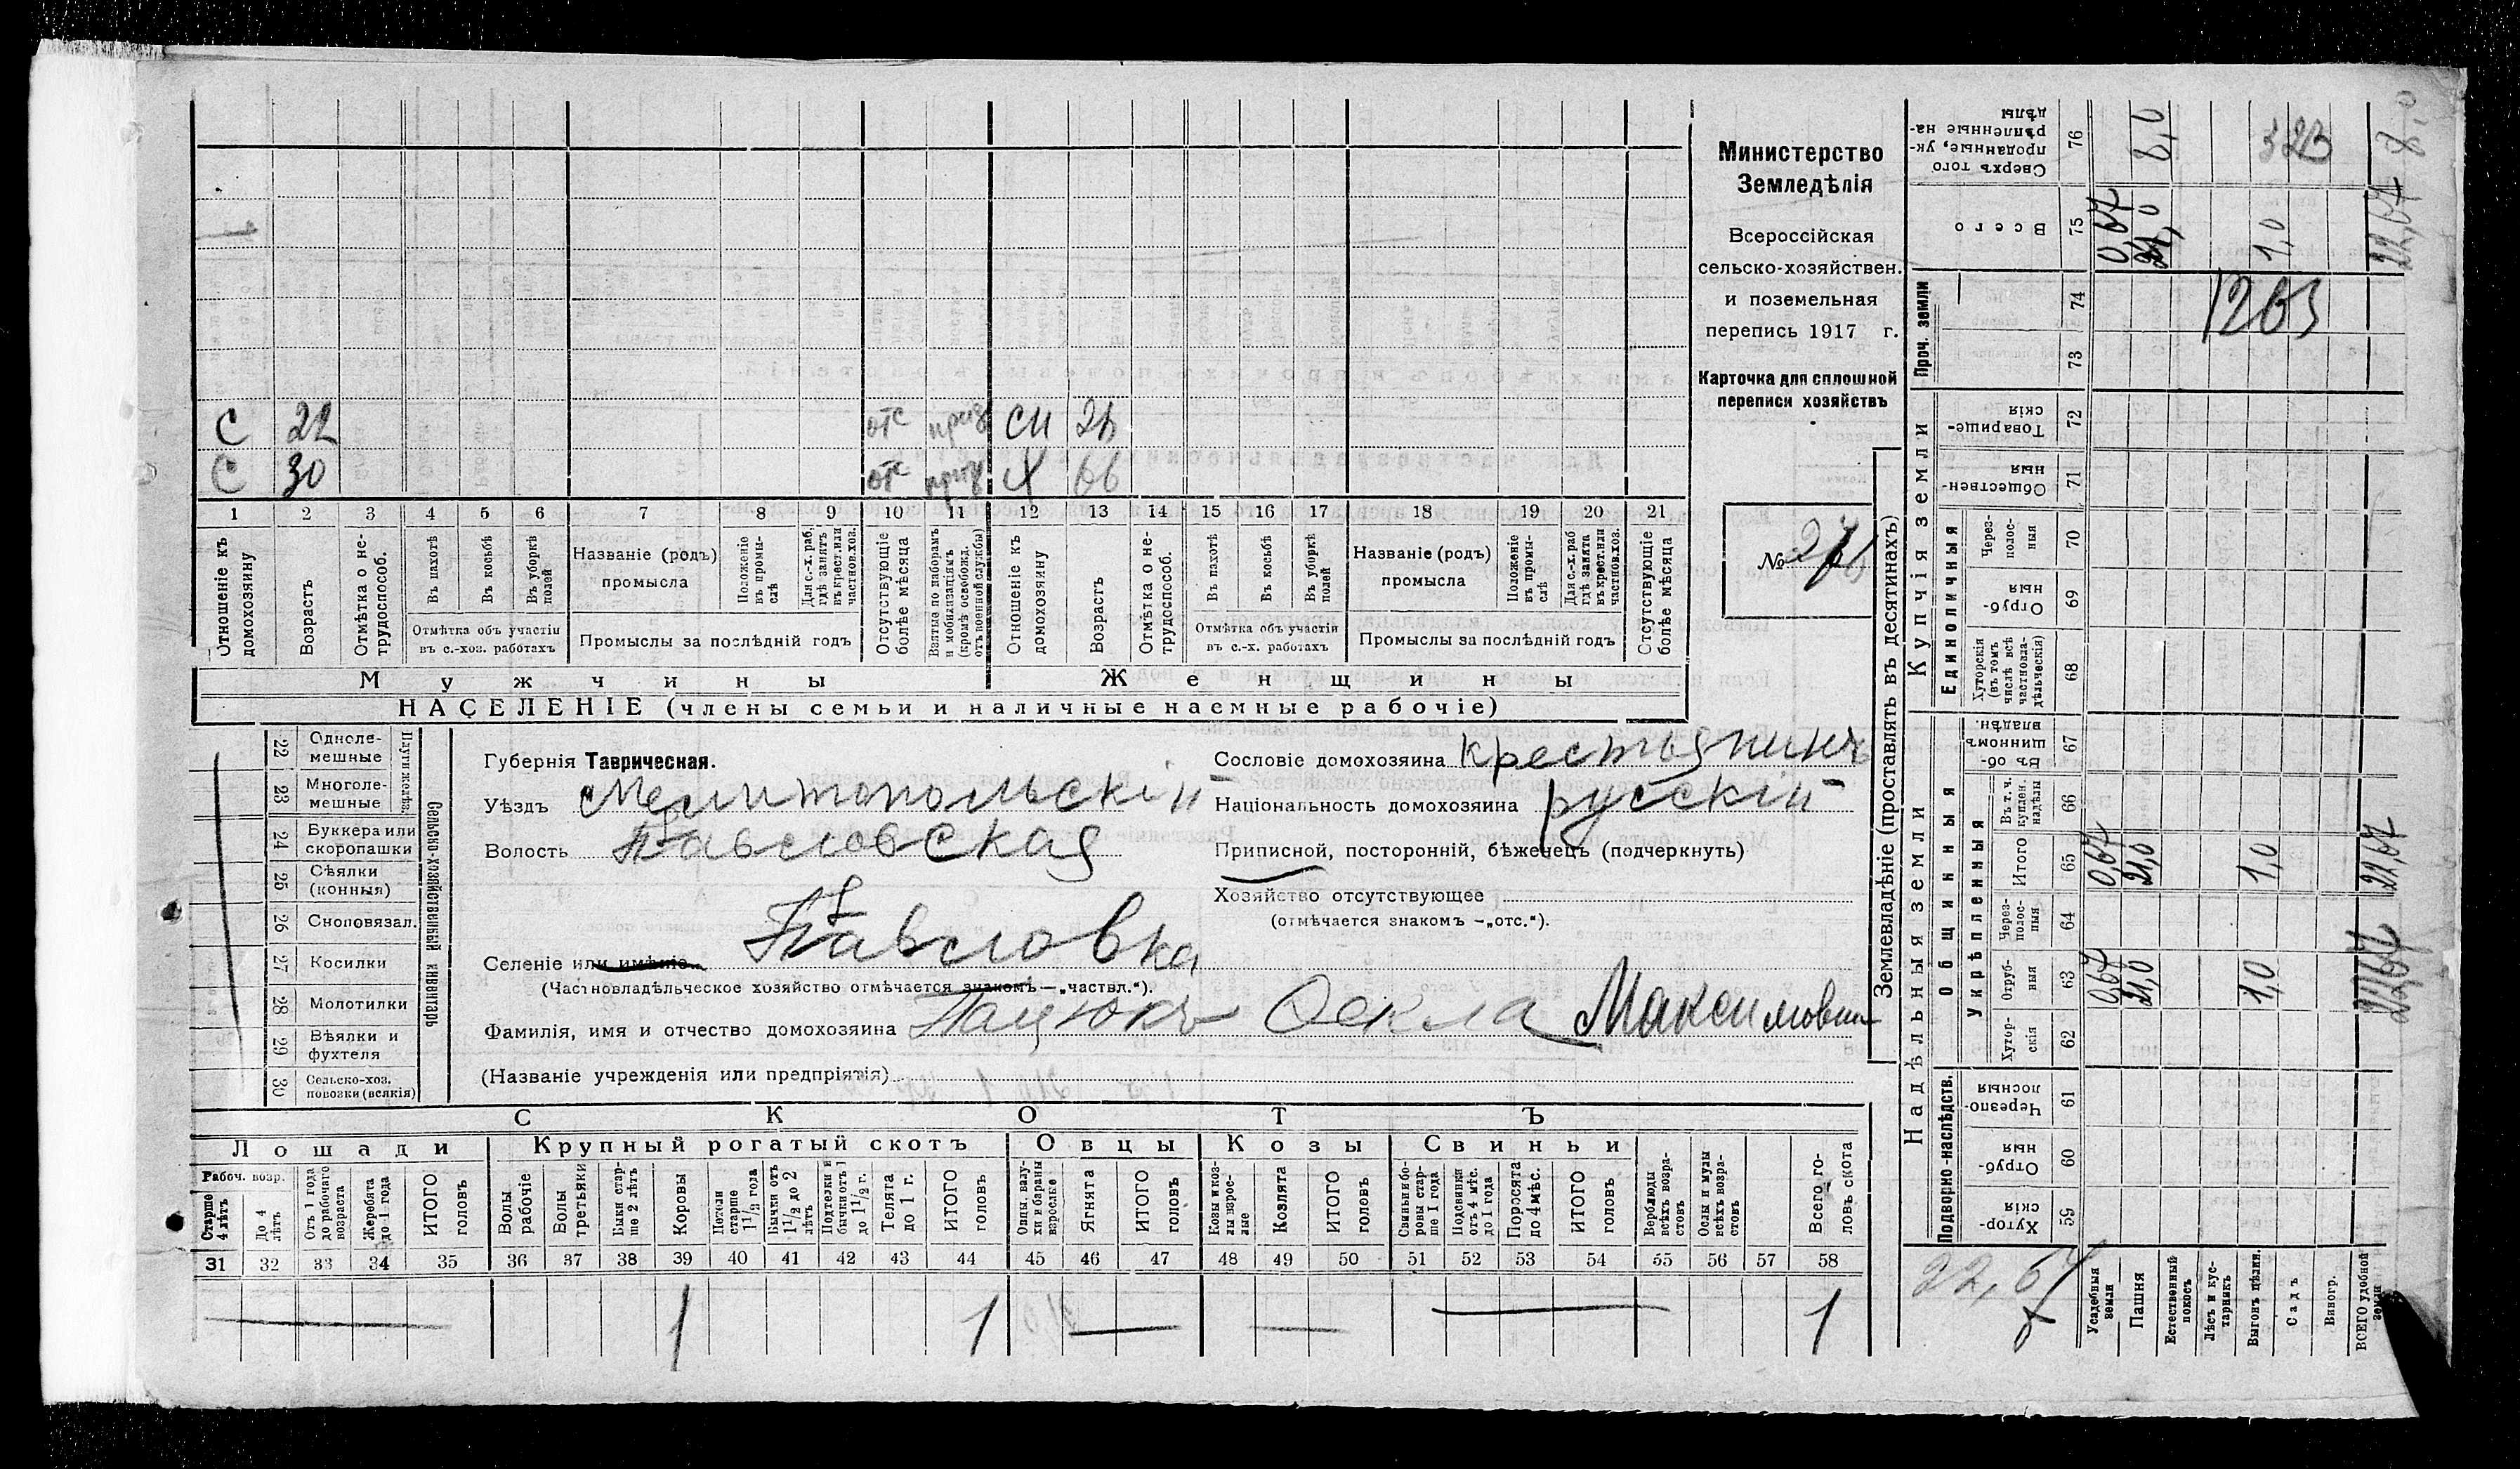 С 22 отс приз СН 26
С 30 отс приз Х 66
1 2 3 4 5 6 7 8 9 10 11 12 13 14 15 16 17 18 19 20 21
Отношеніе къ домохозяину
Возрастъ
Отмѣтка о не-трудоспособ.
Въ пахотѣ
Въ косьбѣ
Въ уборкѣ полей
Отмѣтка объ участіи въ с.-хоз. работахъ
Названіе (родъ) промысла
Положеніе въ промы-слѣ
Для с.-х. раб. гдѣ занятъ въ крест. или частнов. хоз.
Промыслы за послѣдній годъ
Отсутствующіе болѣе мѣсяца
Взятые по наборамъ и мобилизаціямъ (кромѣ освобожд. отъ военной службы)
Отношеніе къ домохозяину
Возрастъ
Отмѣтка о не-трудоспособ.
Въ пахотѣ
Въ косьбѣ
Въ уборкѣ полей
Отмѣтка объ участіи въ с.-х. работахъ
Названіе (родъ) промысла
Положеніе въ промы-слѣ
Для с.-х. раб гдѣ занята въ крест. или частнов. хоз.
Промыслы за послѣдній годъ
Отсутствующіе болѣе мѣсяца
Мужчины
Женщины
НАСЕЛЕНІЕ (члены семьи и наличные наемные рабочіе)
Министерство
Земледѣлія
Всероссійская
сельско-хозяйствен.
и поземельная
перепись 1917 г.
Карточка для сплошной
переписи хозяйствъ
№
22 Одноле-мешные
23 Многоле-мешные
Плуги желѣз.
24 Буккера или скоропашки
25 Сѣялки (конныя)
26 Сноповязал.
27 Косилки
28 Молотилки
29 Вѣялки и фухтеля
30 Сельско-хоз. повозки (всякія)
Сельско-хозяйственный инвентарь
Губернія Таврическая.
Уѣздъ Мелитопольскій
Волость Павловская
Селеніе или имѣніе Павловка
(Частновладѣльческое хозяйство отмѣчается знакомъ—„частвл.“).
Фамилія, имя и отчество домохозяина Пацюкъ Өекла Максимовна
(Названіе учрежденія или предпріятія)
Сословіе домохозяина крестьянинъ
Національность домохозяина русскій
Приписной, посторонній, бѣженецъ (подчеркнуть)
Хозяйство отсутствующее
(отмѣчается знакомъ —„отс.“).
СКОТЪ
Лошади
Крупный рогатый скотъ
Овцы
Козы
Свиньи
Рабоч. возр.
Старше 4 лѣтъ
До 4 лѣтъ
Отъ 1 года до рабочаго возраста
Жеребята до 1 года
ИТОГО головъ
Волы рабочіе
Волы третьяки
Быки стар-ше 2 лѣтъ
Коровы
Нетели старше 1 1/2 года
Бычки отъ 1 1/2 до 2 лѣтъ
Подтелки и бычки отъ 1 до 1 1/2 г.
Телята до 1 г.
ИТОГО головъ
Овцы, валу-хи и бараны взрослые
Ягнята
ИТОГО головъ
Козы и коз-лы взрос-лые
Козлята
ИТОГО головъ
Свиньи бо-ровы стар-ше 1 года
Подсвинки отъ 4 мѣс. до 1 года
Поросята до 4 мѣс.
ИТОГО головъ
Верблюды всѣхъ возра-стовъ
Ослы и мулы всѣхъ возра-стовъ
Всего го-ловъ скота
31 32 33 34 35 36 37 38 39 40 41 42 43 44 45 46 47 48 49 50 51 52 53 54 55 56 57 58
1 1 1
Землевладѣніе (проставлять въ десятинахъ)
Надѣльныя земли
Купчія земли
Проч. земли
Подворно-наслѣдств.
Общинныя
Укрѣпленныя
Единоличныя
Сверхъ того проданные, ук-рѣпленные на-дѣлы 76 8,0
Всего 75 0,67 21,0 1,0 22,67
74 1203
73
Товарище-скія 72
Обществен-ныя 71
Через-полос-ныя 70
Отруб-ныя 69
Хуторскія (въ томъ числѣ всѣ частновла-дѣльческія) 68
Въ об-щинномъ владѣн. 67
Въ т. ч. куплен. надѣлы 66
Итого 65 0,67 21,0 1,0 22,67
Через-полос-ныя 64
Отруб-ныя 63 0,67 21,0 1,0 22,67
Хутор-скія 62
Черезпо-лосныя 61
Отруб-ныя 60
Хутор-скія 59
22,67
Усадебныя земли
Пашня
Естественный покосъ
Лѣсъ и кус-тарникъ
Выгонъ цѣлин.
Садъ
Виногр.
ВСЕГО удобной земли